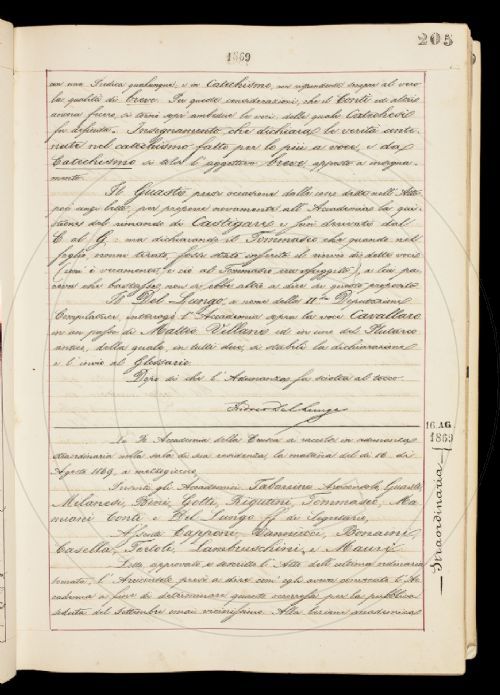 205
1869
con una Tedica qualunque; e in Catechismo, non rispondente sempre al vero
la qualità di breve. Per queste considerazioni, che il Conti ed altri
ancora fecero, si tornò sopra ambedue le voci, delle quali Catechesi
fu definita: Insegnamento che dichiara le verità conte-
nute nel catechismo fatto per lo più a voce; e da
Catechismo si tolse l'aggettivo breve apposto a insegna-
mento.
Il Guasti prese occasione dalle cose dette nell'Atto
poi anzi letto, per proporre nuovamente all'Accademia la qui-
stione del rimando di Castigare e suoi derivati dal
C al G: ma dichiarando il Tommasèo che quando nel
foglio venne tirato, fosse stato inserito il rinvio di dette voci
(come è veramente, e ciò al Tommasèo era sfuggito), a lui pa-
reva che bastasse; non si ebbe altro a dire su questo proposito.
Il Del Lungo, a nome della IIª Deputazione
Compilatrice, interrogò l'Accademia sopra la voce Cavallaro
in un passo di Matteo Villani ed in uno del Plutarco
della quale, in tutti due, si stabilì la dichiarazione
e l'invio al Glossario.
Dopo di che l'Adunanza fu sciolta al tocco.
Isidoro Del Lungo
16 AG.
1869
Straordinaria
La R. Accademia della Crusca si raccolse in adunanza
straordinaria nella sala di sua residenza, la mattina del dì 16 di
Agosto 1869, a mezzogiorno.
Presenti gli Accademici Tabarrini Arciconsolo, Guasti,
Milanesi, Bini, Gotti, Rigutini, Tommasèo, Ma-
miani Conti e Del Lungo ff. di Segretario.
Assenti Capponi, Vannucci, Bonaini
Casella, Tortoli, Lambruschini, e Mauri.
Letto, approvato e sottoscritto l'Atto dell'ultima ordinaria
tornata, l'Arciconsolo prese a dire com'egli aveva convocata l'Ac-
cademia a fine di determinare quanto occorresse per la pubblica
seduta del Settembre omai vicinissimo. Alla lezione accademica